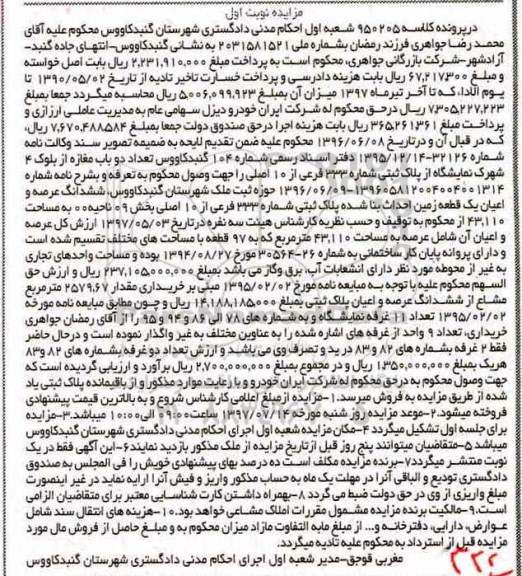 مزایده نوبت اول
درپرونده کلاسه ۹۵۰۲۰۵ شعبه اول احکام مدنی دادگستری شهرستان گنبدکاووس محکوم علیه آقای
محمد رضا جواهری فرزند رمضان بشماره ملی ۲۰۳۱۵۸۱۵۲۱ به نشانی گنبدکاووس-انتهای جاده گنبد-
آزادشهر-شرکت بازرگانی جواهری، محکوم است به پرداخت مبلغ ۲,۲۳۱,۹۱۰,۰۰۰ ریال بابت اصل خواسته
و مبلغ ۶۷,۲۱۷,۳۰۰ ریال بابت هزینه دادرسی و پرداخت خسارت تاخیر تادیه از تاریخ ۱۳۹۰/۰۵/۰۲ تا
یوم الاداء، که تا آخر تیرماه ۱۳۹۷ میزان آن بمبلغ ۵,۰۰۶,۰۹۹,۹۲۳ ریال محاسبه میگردد جمعا بمبلغ
۷,۳۰۵,۲۲۷,۲۲۳ ریال درحق محکوم له شرکت ایران خودرو دیزل سهامی عام به مدیریت عاملی ارزازی و
پرداخت مبلغ ۳۶۵,۲۶۱,۳۶۱ ریال بابت هزینه اجرا درحق صندوق دولت جمعا بمبلغ ۷,۶۷۰,۴۸۸,۵۸۴ ریال،
که در قبال آن و درتاریخ ۱۳۹۶/۰۶/۰۸ محکوم علیه ضمن تقدیم لایحه به ضمیمه تصویر سند وکالت نامه
شماره ۳۲۱۲۶-۱۳۹۳/۱۲/۱۴ دفتر اسناد رسمی شماره ۱۰۴ گنبدکاووس تعداد دو باب مغازه از بلوک ۴
شهرک نمایشگاه از پلاک ثبتی شماره ۳۳۳ فرعی از ۱۰ اصلی را جهت وصول محکوم به تعرفه و بشرح نامه شماره
حوزه ثبت ملک شهرستان گنبدکاووس، ششدانگ عرصه و
اعیان یک قطعه زمین احداث بنا شده پلاک ثبتی شماره ۳۳۳ فرعی از ۱۰ اصلی بخش ۰۹ ناحیه ۰۰ به مساحت
۴۳,۱۱۰ از محکوم به توقیف و حسب نظریه کارشناس هیئت سه نفره درتاریخ ۱۳۹۷/۰۵/۰۳ ارزش کل عرصه
و اعیان آن شامل عرصه به مساحت ۴۳,۱۱۰ مترمربع که به ۹۷ قطعه با مساحت های مختلف تقسیم شده است
و دارای پروانه پایان کار ساختمانی به شماره ۲۶-۳۰۵۶۴ مورخ ۱۳۹۴/۰۸/۲۷ بوده و مساحت واحدهای تجاری
به غیر از محوطه مورد نظر دارای انشعابات آب، برق وگاز می باشد بمبلغ ۲۳۷,۱۰۵,۰۰۰,۰۰۰ ریال و ارزش حق
السهم محکوم علیه با توجه به مبایعه نامه مورخ ۱۳۹۵/۰۲/۰۲ مبنی بر خریداری مقدار ۲۵۷۹,۶۷ مترمربع
مشاع از ششدانگ عرصه و اعیان پلاک ثبتی بمبلغ ۱۴,۱۸۸,۱۸۵,۰۰۰ ریال و چون مطابق مبایعه نامه مورخه
۱۳۹۵/۰۲/۰۲ تعداد ۱۱ غرفه نمایشگاه و به شماره های ۷۸ الی ۸۶ و ۹۴ و ۹۵ را از آقای رمضان جواهری
خریداری، تعداد ۹ واحد از غرفه های اشاره شده را به عناوین مختلف به غیر واگذار نموده است و درحال حاضر
فقط ۲ غرفه بشماره های ۸۲ و ۸۳ در ید و تصرف وی می باشید و ارزش تعداد دو غرفه بشماره های ۸۲ و ۸۳
هریک بمبلغ ۱,۳۵۰,۰۰۰,۰۰۰ ریال و در مجموع بمبلغ ۲,۷۰۰,۰۰۰,۰۰۰ ریال برآورد و ارزیابی گردیده است که
جهت وصول محکوم به درحق محکوم له شرکت ایران خودرو و با رعایت موارد مذکور و از باقیمانده پلاک ثبتی یاد
شده از طریق مزایده به فروش میرسد.۱-مزایده از مبلغ اعلامی کارشناس شروع و به بالاترین قیمت پیشنهادی
فروخته میشود.۲-موعد مزایده روز شنبه مورخه ۱۳۹۷/۰۷/۱۴ ساعت ۰۹:۰۰ الی ۱۰:۰۰ میباشد.۳-مزایده
برای جلسه اول تشکیل میگردد ۴-مکان مزایده شعبه اول اجرای احکام مدنی دادگستری شهرستان گنبدکاووس
میباشد ۵-متقاضیان میتوانند پنج روز قبل ازتاریخ مزایده از ملک مذکور بازدید نمایند ۶-این آگهی فقط در یک
نوبت منتشر میگردد ۷-برنده مزایده مکلف است ده درصد بهای پیشنهادی خویش را فی المجلس به صندوق
دادگستری تودیع و الباقی آنرا در مهلت یک ماه به حساب مذکور واریز و فیش آنرا ارایه نماید در غیر اینصورت
مبلغ واریزی از وی در حق دولت ضبط می گردد ۸-بهمراه داشتن کارت شناسایی معتبر برای متقاضیان الزامی
است.۹-مالکیت برنده مزایده مشمول مقررات املاک مشاعی خواهد بود.۱۰-هزینه های انتقال سند شامل
عوارض، دارایی، دفترخانه و... از مبلغ مابه التفاوت مازاد میزان محکوم به و مبلغ حاصل از فروش مال مورد
مزایده قبل از استرداد به محکوم علیه تادیه میگردد.
مغربی قوجق-مدیر شعبه اول اجرای احکام مدنی دادگستری شهرستان گنبدکاووس